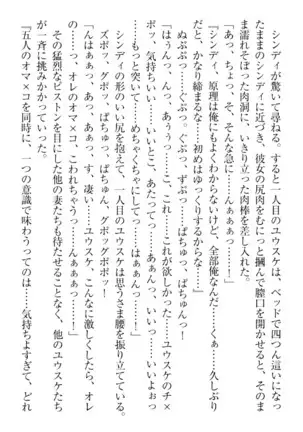 シンディが驚いて尋ねる。すると一人目のユウスケは、ベッドで四つん這いになっ
たままのシンディに近づき、彼女の尻肉をむにっと掴んで膣口を開かせると、そのま
ま濡れそぼった肉洞に、いきり立った肉棒を差し入れた。
「あっ、ちょっ、そ、そんな急に……んぁぁぁっ！」
『シンディ、原理は俺にもよくわからないけど、全部俺なんだ……くぅ……久しぶり
だな、かなり締まるな……初めはゆっくりするからな……』
ぬぷぷっ……ぐぷっ。ぐぷぷっ、ずぷっ、ぱちゅっ、ぱちゅん！
「はぅんっ、んっ、あぅぅっ……こ、これ……これが欲しかった……ユウスケのチ×
ポッ、気持ちいい……いいとこ、あたって……あぁんっ、いいっ……いいよぉっ
……もっと突いて……めちゃくちゃにしてっ……はぁぁんっ……！」
シンディの形のいい尻を抱えて、一人目のユウスケは思うさま腰を振り立ている。
ズボッ、グボッ、ぱちゅっ、ぱちゅん、グボグボボッ！
「んはぁぁっ、あっ、あぁぁっ、す、凄い……ユウスケ、こんなに激しくしたら、オレ
……っ、オレのオマ×コ、こわれちゃうっ……んぁぁぁっ！」
その猛烈なピストンを目にした他の妻たちも待たせることなく、他のユウスケたち
が一斉に挑みかかっていった。
『五人のオマ×コを同時に、一つの意識で味わうってのは……気持ちよすぎて、どれ